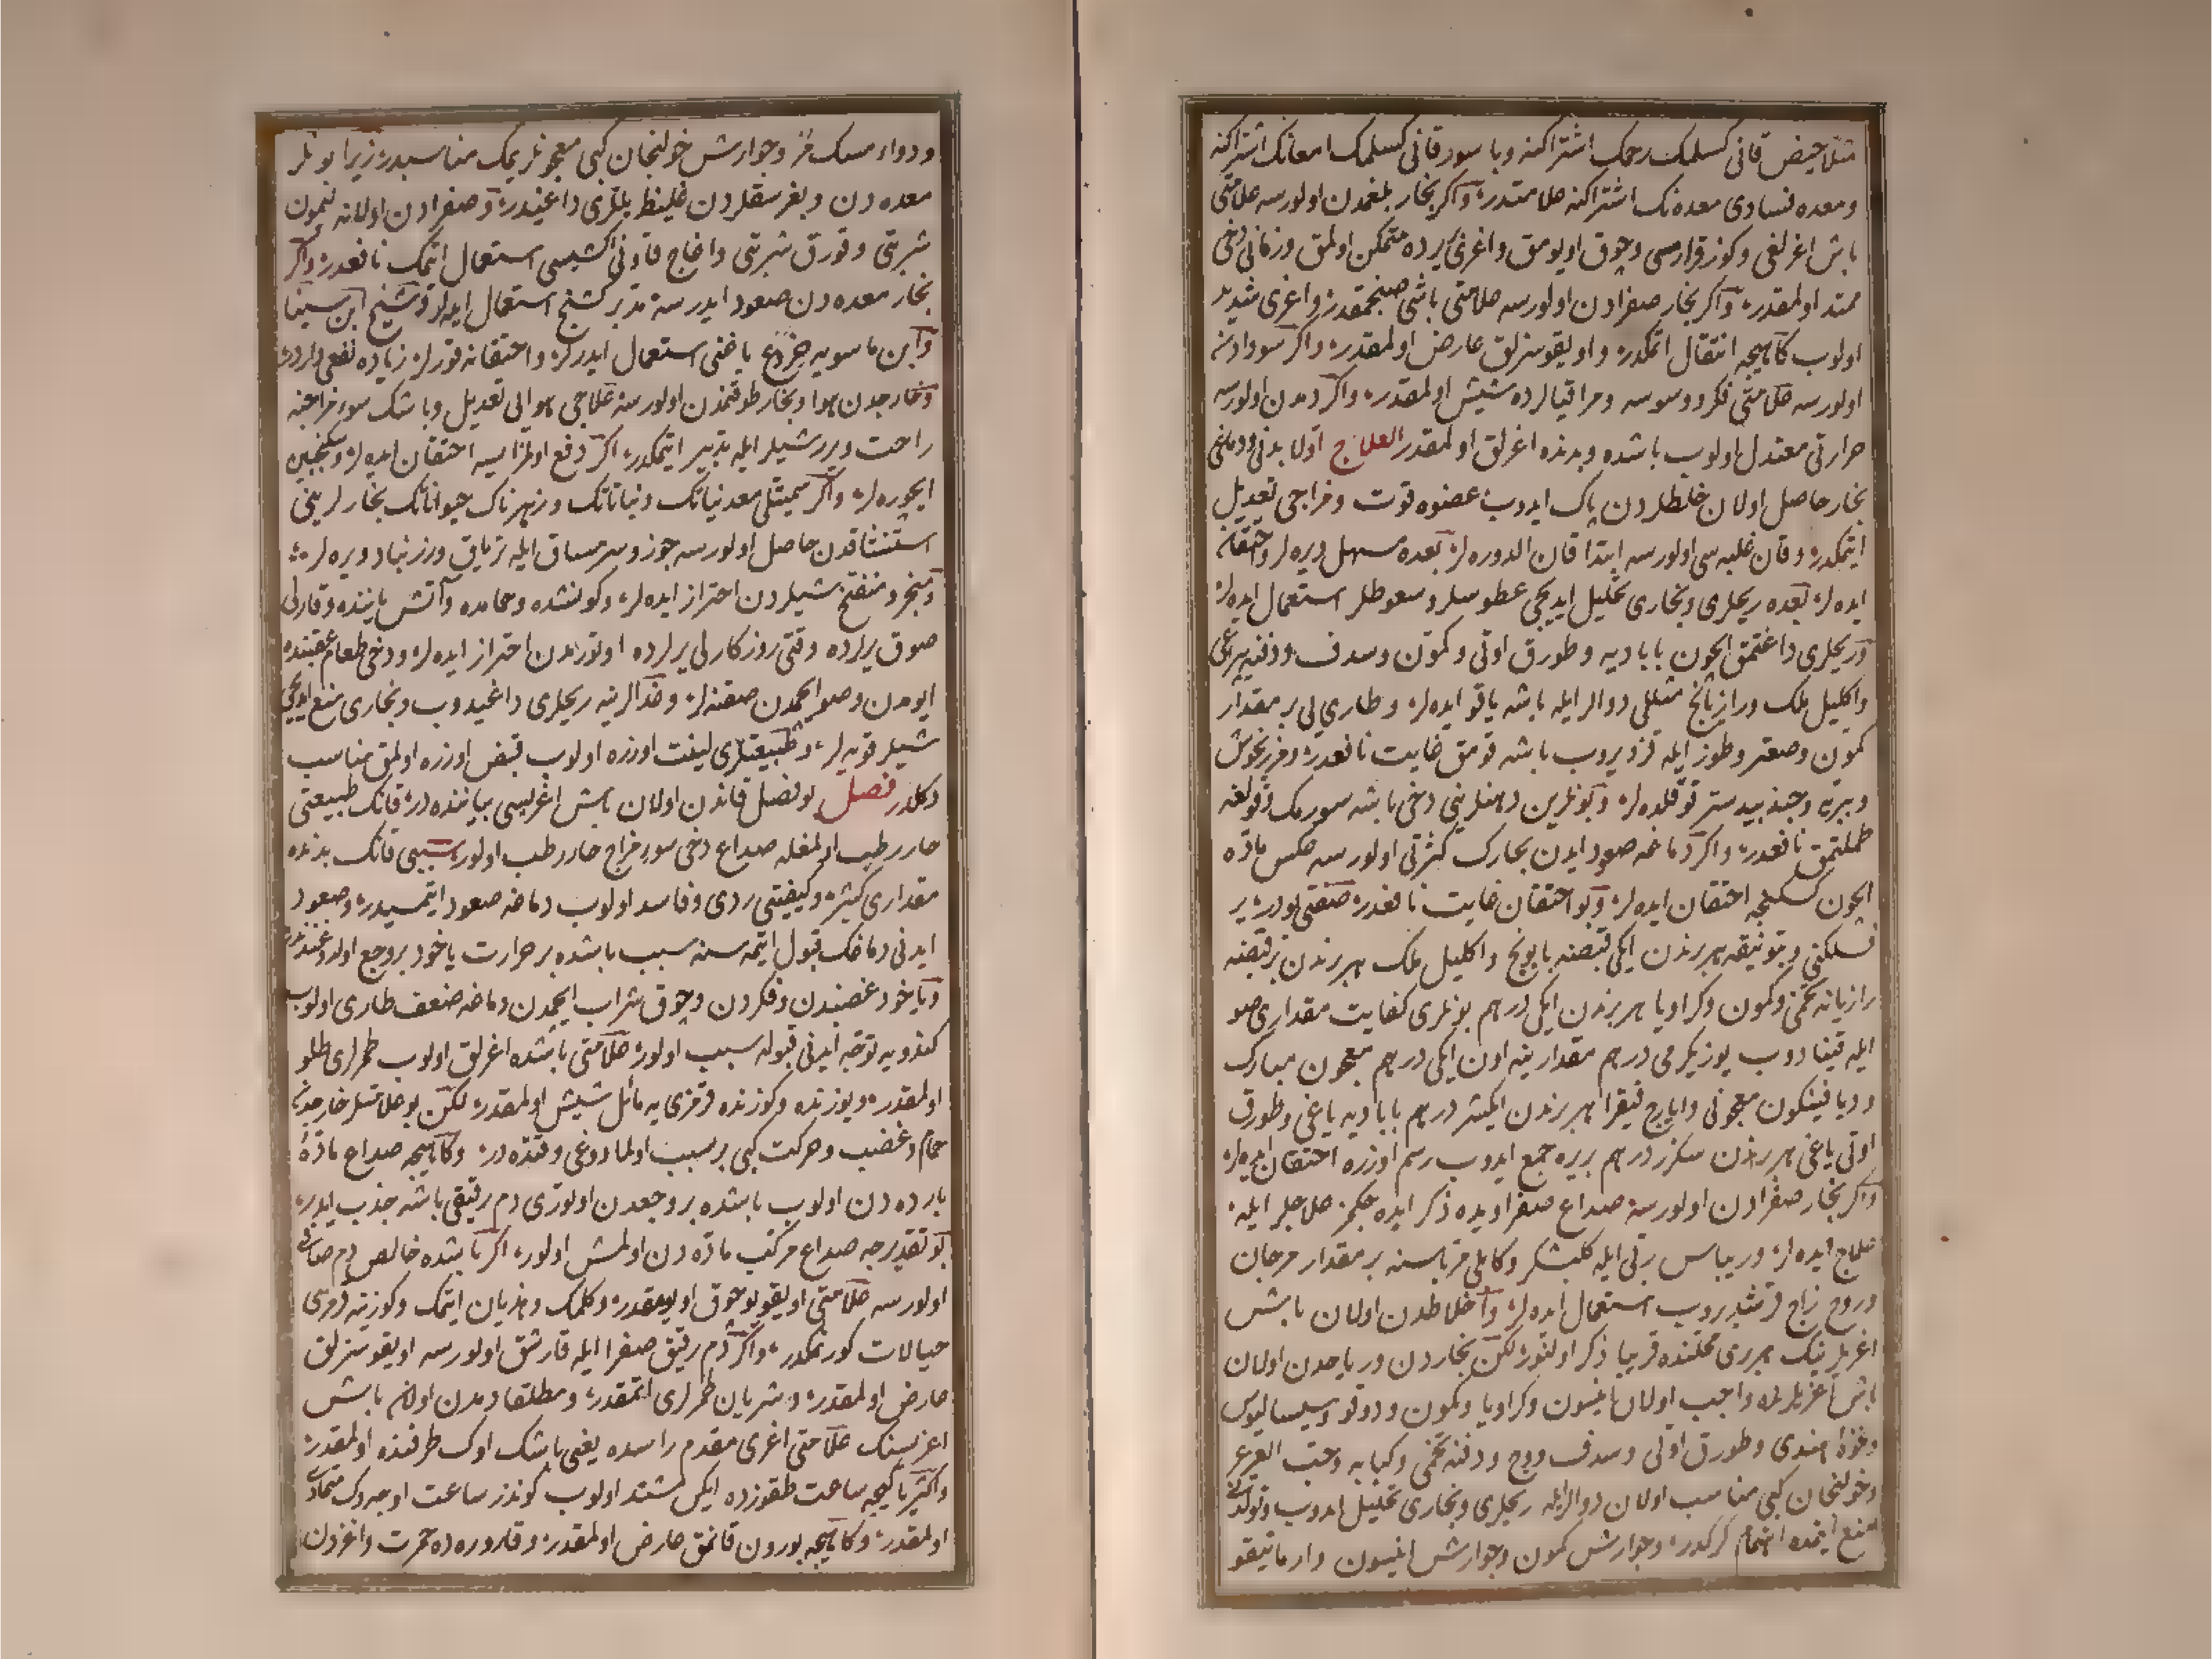 مثلا حیض قانی کسلمك رحمك اشتراکنه وباسور قانی کسلمك امعانك اشتراکنه
ومعده فسادی معده نك اشتراکنه علامتدر واکر بخار بلغمدن اولورسه علامتی
باش اغرلغی وکوز قرارمسی وچوق اویومق واغری بر یرده متمکن اولمق وزمانی دخی
ممتد اولمقدر واکر بخار صفرادن اولورسه علامتی باشی صنجمقدر واغری شدید
اولوب کاهیجه انتقال اتمکدر واویقوسزلق عارض اولمقدر واکر سودادن
اولورسه علامتی فکر ووسوسه ومراقیالرده شیش اولمقدر واکر دمدن اولورسه
حرارتی معتدل اولوب باشده وبدنده اغرلق اولمقدر العلاج اولا بدنی ودماغی
بخار حاصل اولان خلطلردن پاك ایدوب عضوه قوت ومزاجی تعدیل
ایتمکدر وقان غلبه سی اولورسه ابتدا قان الدوره لر بعده مسهل ویره لر وحقنه
ایده لر بعده ریحلری وبخاری تحلیل ایدیجی عطوسلر وسعوطلر استعمال ایده لر
وریحلری داغتمق ایچون بابادیه وطورق اوتی وکمون وسدف ودفنه یپراغی
واکلیل ملك ورازیانج مثللی دوالر ایله باشه یاقو ایده لر وطاری یی بر مقدار
کمون وصعتر وطوز ایله قزدیروب باشه قومق غایت نافعدر ومرزنجوش
وجندبیدستر قوقلده لر وبونلرین دهنلرینی دخی باشه سورمك وقولغه
طملتمق نافعدر واکر دماغه صعود ایدن بخارك کثرتی اولورسه عکس ماده
ایچون احتقان ایده لر وبو احتقان غایت نافعدر صنعتی بودر بر
هر برندن ایکی قبضه بابونج واکلیل ملك هر برندن بر قبضه
رازیانه تخمی وکمون وکراویا هر برندن ایکی درهم بونلری کفایت مقداری صو
ایله قینادوب یوز یکرمی درهم مقدارینه اون ایکی درهم معجون مبارك
ودیافینکون معجونی وایارج فیقرا هر برندن ایکیشر درهم بابادیه یاغی وطورق
اوتی یاغی هر برندن سکزر درهم بر یره جمع ایدوب رسم اوزره احتقان ایده لر
واکر بخار صفرادن اولورسه صداع صفراویده ذکر ایده جکمز علاجلر ایله
علاج ایده لر وریباس ربی ایله کلبشکر وکابلی مرباسنه بر مقدار مرجان
وروح زاج قرشدیروب استعمال ایده لر واخلاطدن اولان باش
اغریلرینك هر بری محلنده قریبا ذکر اولنور لکن بخاردن وریاحدن اولان
باش اغریلرنده واجب اولان انیسون وکراویا وکمون ودوقو وسیسالیوس
هندی وطورق اوتی وسدف ووج ودفنه تخمی وکبابه وحب العرعر
وخولنجان کبی مناسب اولان دوالرایله ریحلری وبخاری تحلیل ایدوب وتولدنی
منع ایتمده اهتمام کرکدر وجوارش کمون وجوارش انیسون
ودواء مسك مر وجوارش خولنجان کبی معجونلر یمك مناسبدر زیرا بونلر
معده دن وبغرسقلردن غلیظ یللری داغیدر وصفرادن اولانه لیمون
شربتی وقورق شربتی واغاج قاونی اکشیسی استعمال اتمك نافعدر واکر
بخار معده دن صعود ایدرسه تدبر کشنج استعمال ایده لر وشیخ ابن سینا
وابن ماسویه خردع یاغنی استعمال ایدرلر واحتقانه قورلر زیاده نفعی واردر
وخارجدن هوا وبخار طوقنمدن اولورسه علاجی هوایی تعدیل وباشك سوء مزاجنه
راحت ویرر شیلر ایله تدبیر ایتمکدر اکر دفع اولمزایسه احتقان ایده لر وسکنجبین
ایچوره لر واکر سمیتلی معدنیاتك ونباتاتك وزهرناك حیواناتك بخارلرینی
استنشاقدن حاصل اولورسه جوز وسرمساق ایله تریاق وزرنباد ویره لر
ومبخر ومنفخ شیلردن احتراز ایده لر وکونشده وحمامده وآتش یاننده وقارلی
صوق یرلرده وقتی روزکارلی یرلرده اوتورمدن احتراز ایده لر ودخی طعام عقبنده
ایومدن وصو ایچمدن صقنه لر وغدالرینه ریحلری داغیدوب وبخاری منع ایدیجی
شیلر قویه لر وطبیعتلری لینت اوزره اولوب قبض اوزره اولمق مناسب
دکلدر فصل بو فصل قاندن اولان باش اغریسی بیاننده در قانك طبیعتی
حار رطب اولمغله صداع دخی سوء مزاج حار رطب اولور سببی قانك بدنده
مقداری کثیر وکیفیتی ردی وفاسد اولوب دماغه صعود ایتمسیدر وصعود
ایدنی دماغك قبول ایتمه سنه سبب باشده بر حرارت یاخود بر وجع اولدوغندندر
ویاخود غضبدن وفکردن وچوق شراب ایچمدن دماغه ضعف طاری اولوب
کندویه توجه ایدنی قبوله سبب اولور علامتی باشده اغرلق اولوب طمرلری طلو
اولمقدر ویوزنده وکوزنده قرمزی یه مائل شیش اولمقدر لکن بو علامتلر خارجدن
حمام وغضب وحرکت کبی بر سبب اولمادوغی وقتده در وکاهیجه صداع ماده
بارده دن اولوب باشده بر وجعدن اولوری دم رقیقی باشه جذب ایدر
بو تقدیرجه صداع مرکب ماده دن اولمش اولور اکر باشده خالص دم صافی
اولورسه علامتی اویقو چوق اویومقدر وکلمك وهذیان ایتمك وکوزینه قرمزی
خیالات کورنمکدر واکر دم رقیق صفرا ایله قارشق اولورسه اویقوسزلق
عارض اولمقدر وشریان طمرلری اتمقدر ومطلقا دمدن اولان باش
اغریسنك علامتی اغری مقدم راسده یعنی باشك اوك طرفنده اولمقدر
واکثریا کیجه ساعت طقوزده ایکن مشتد اولوب کوندز ساعت اوچه دك متمادی
اولمقدر وکاهیجه بورون قانمق عارض اولمقدر وقاروره ده حمرت واغزدن